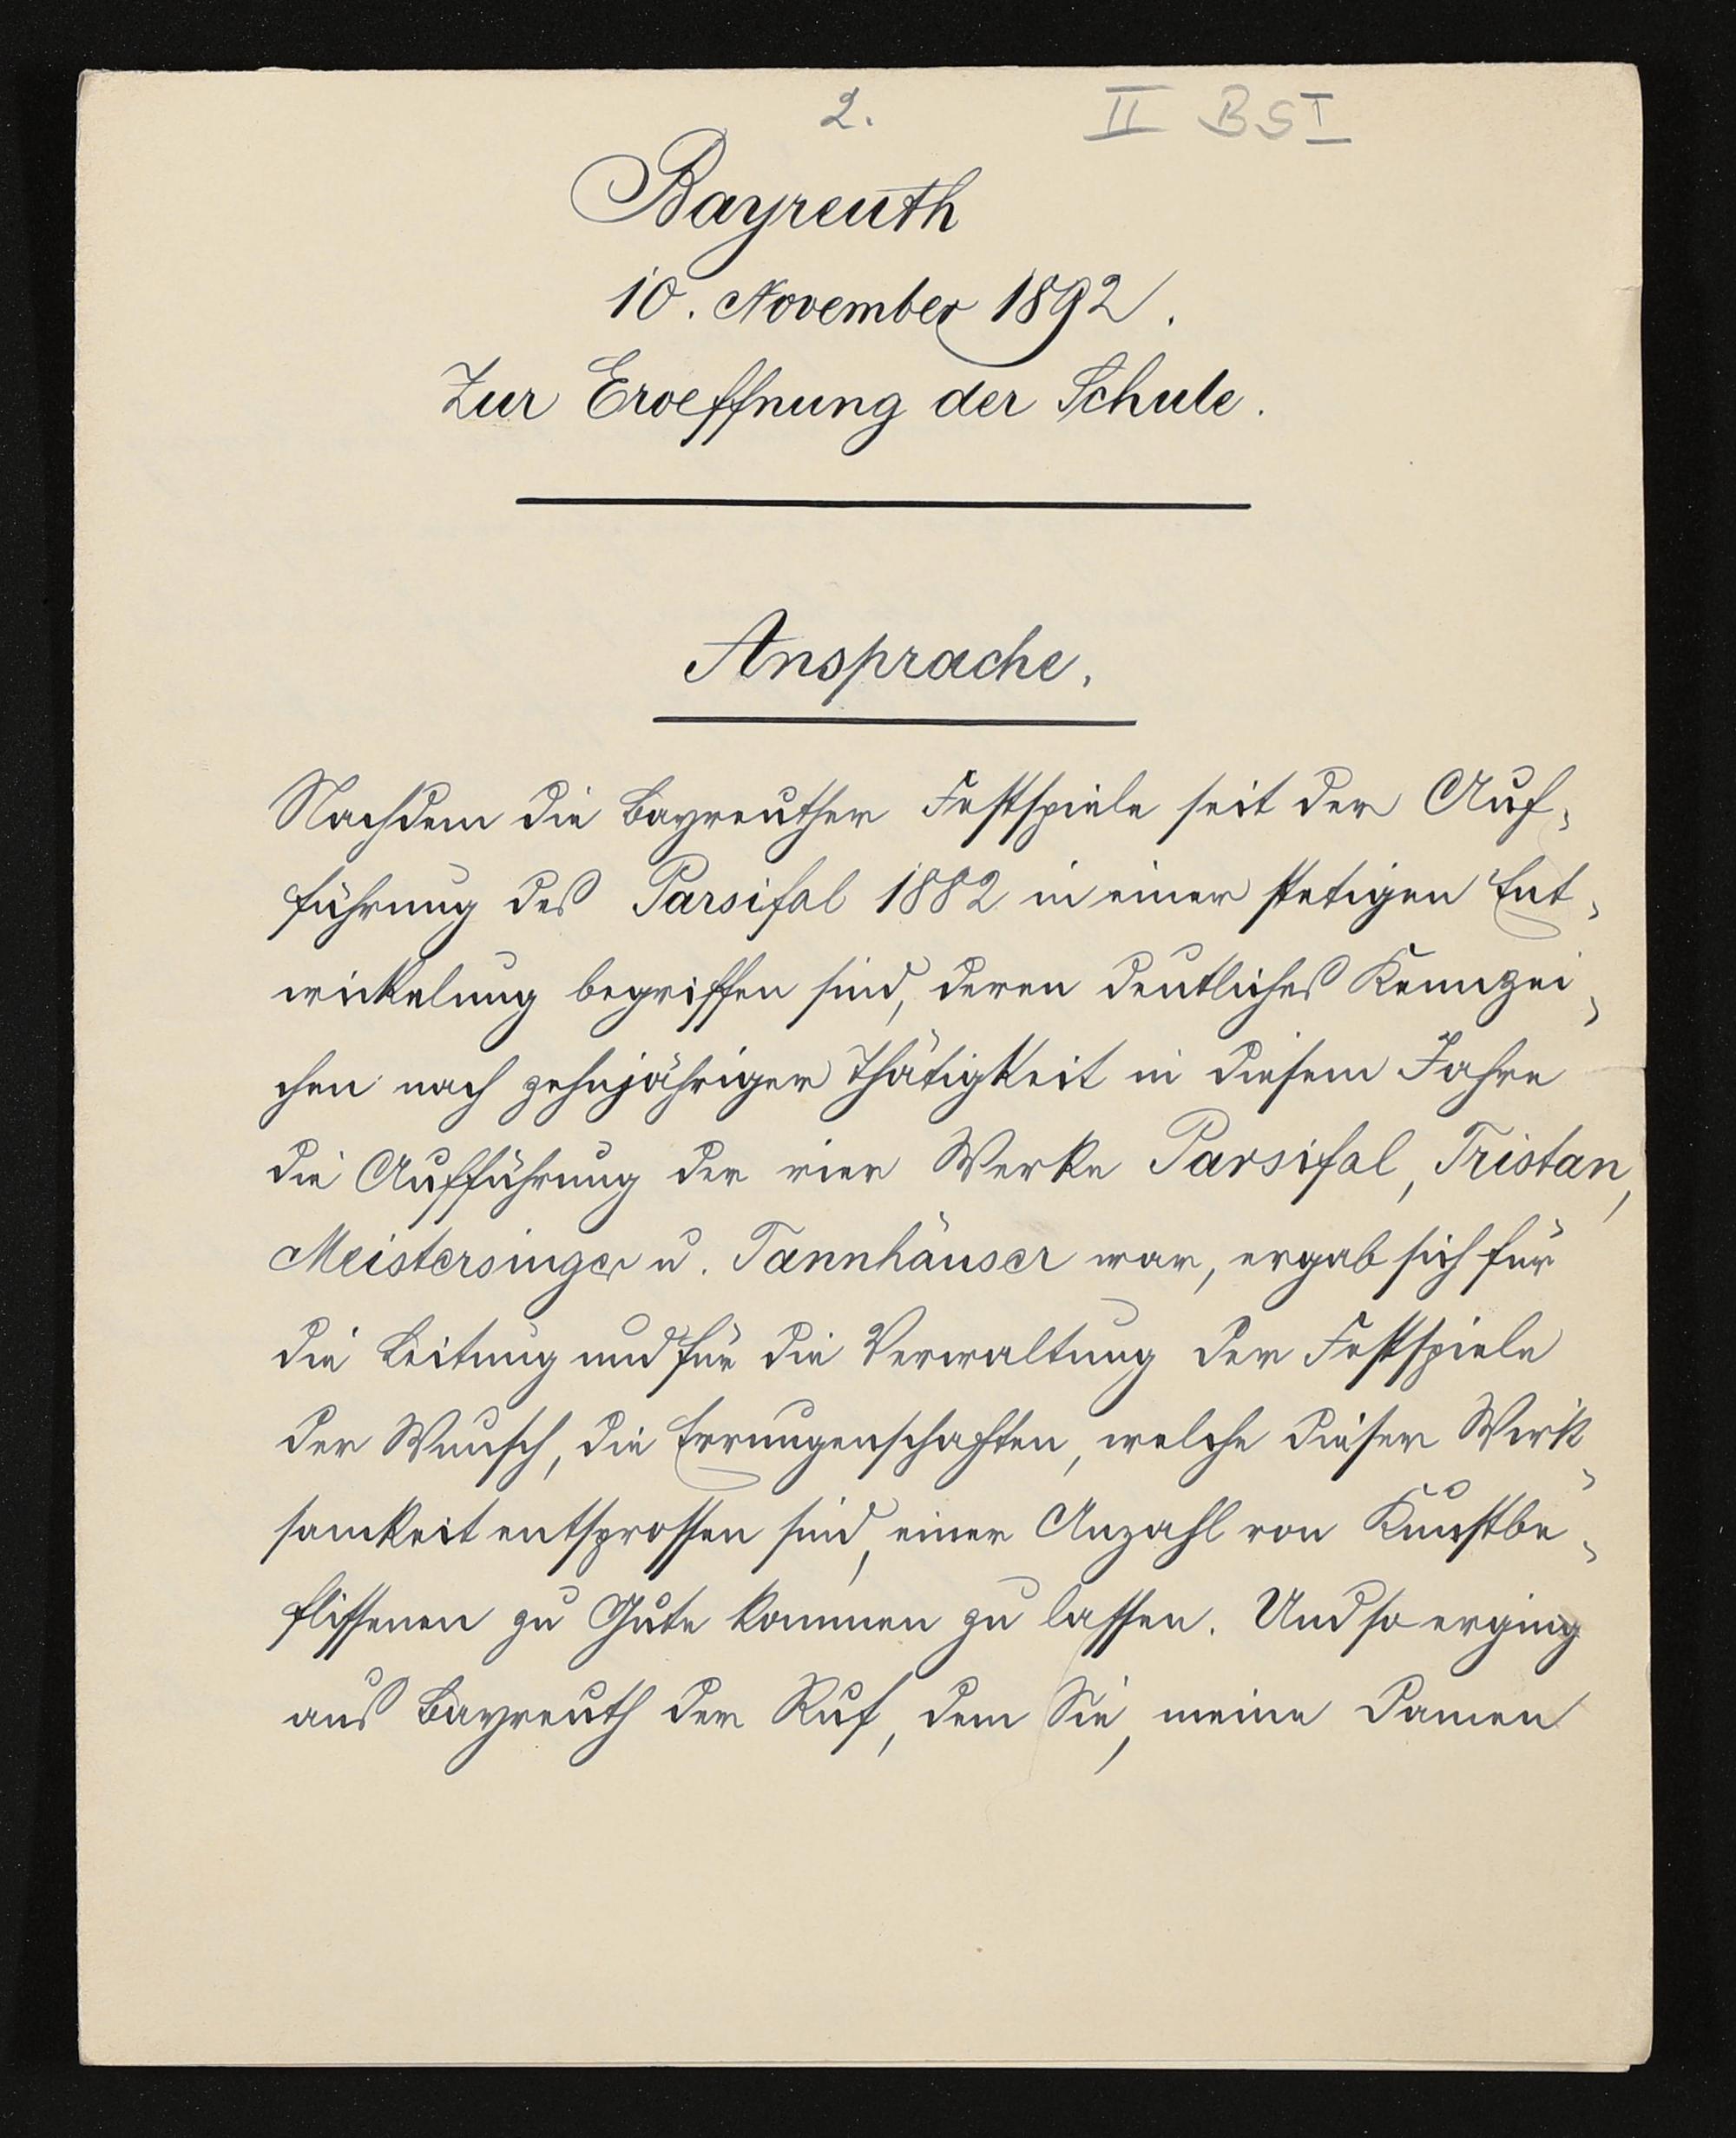 2.
II BSI
Bayreuth
10. November 1892.
Zur Eroeffnung der Schule.
Ansprache.
Nachdem die Bayreuther Festspiele seit der Auf-
führung des Parsifal 1882 in einer stetigen Ent-
wickelung begriffen sind, deren deutliches Kennzei-
chen nach zehnjähriger Thätigkeit in diesem Jahre
die Aufführung der vier Werke Parsifal, Tristan,
Meistersinger u. Tannhäuser war, ergab sich für
die Leitung und für die Verwaltung der Festspiele
der Wunsch, die Errungenschaften, welche dieser Wirk-
samkeit entsprossen sind, einer Anzahl von Kunstbe-
flissenen zu Gute kommen zu lassen. Und so erging
aus Bayreuth der Ruf, dem Sie, meine Damen